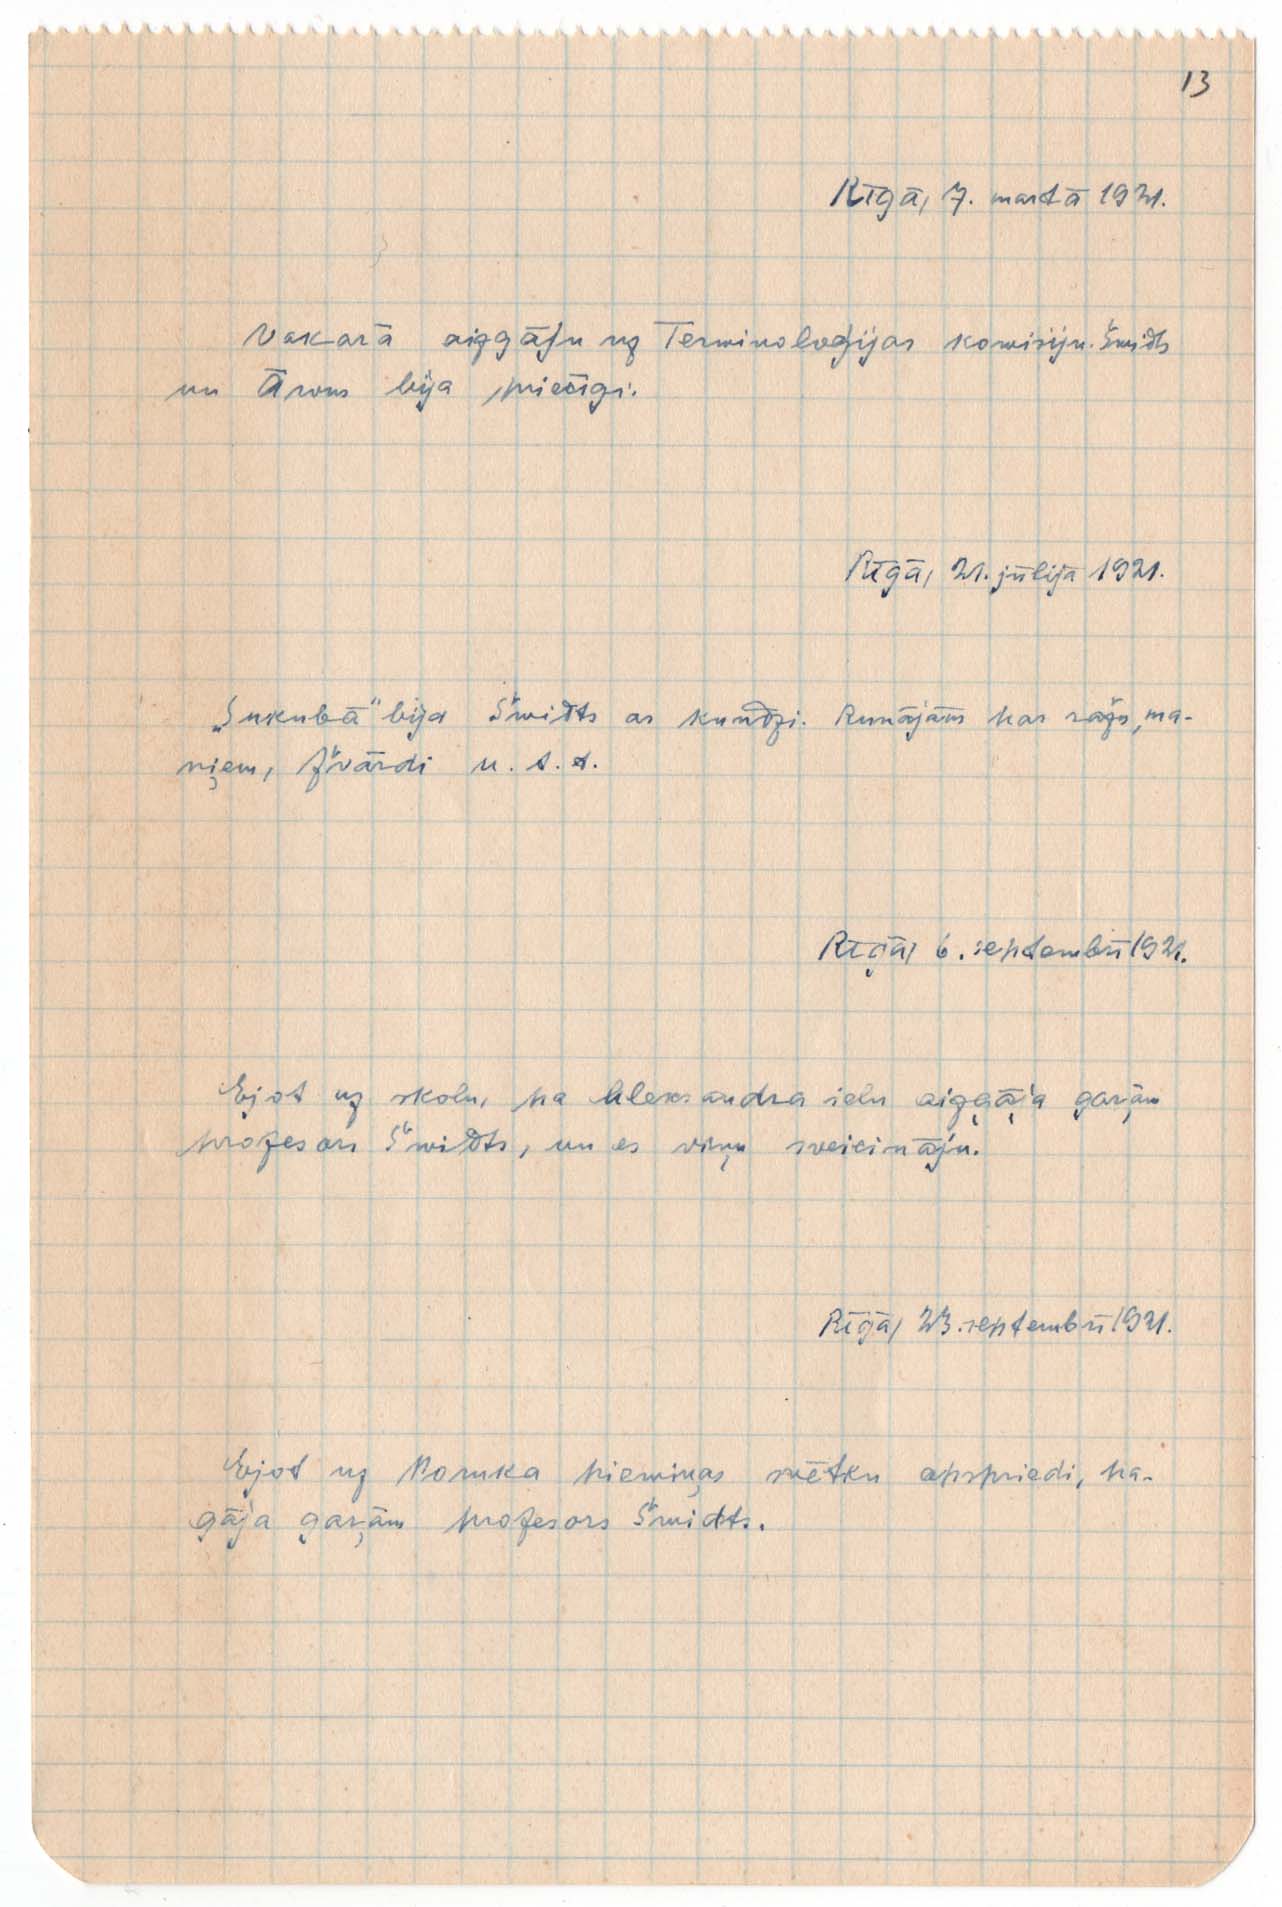 13
Rīgā, 7. martā 1921.
Vakarā aizgāju uz Terminoloģijas komisiju. Šmidts
un Ārons bija priecīgi.
Rīgā, 21. jūlijā 1921.
„Sukubā" bija Šmidts ar kundzi. Runājām par
u. t. t.
Rīgā, 6. septembrī 1921.
Ejot uz skolu, pa Aleksandra ielu aizgāja gaŗām
profesors Šmidts, un es viņu sveicināju.
Rīgā, 23. septembrī 1921.
Ejot uz Poruka piemiņas svētku apspriedi, pa-
gāja gaŗām profesors Šmidts.